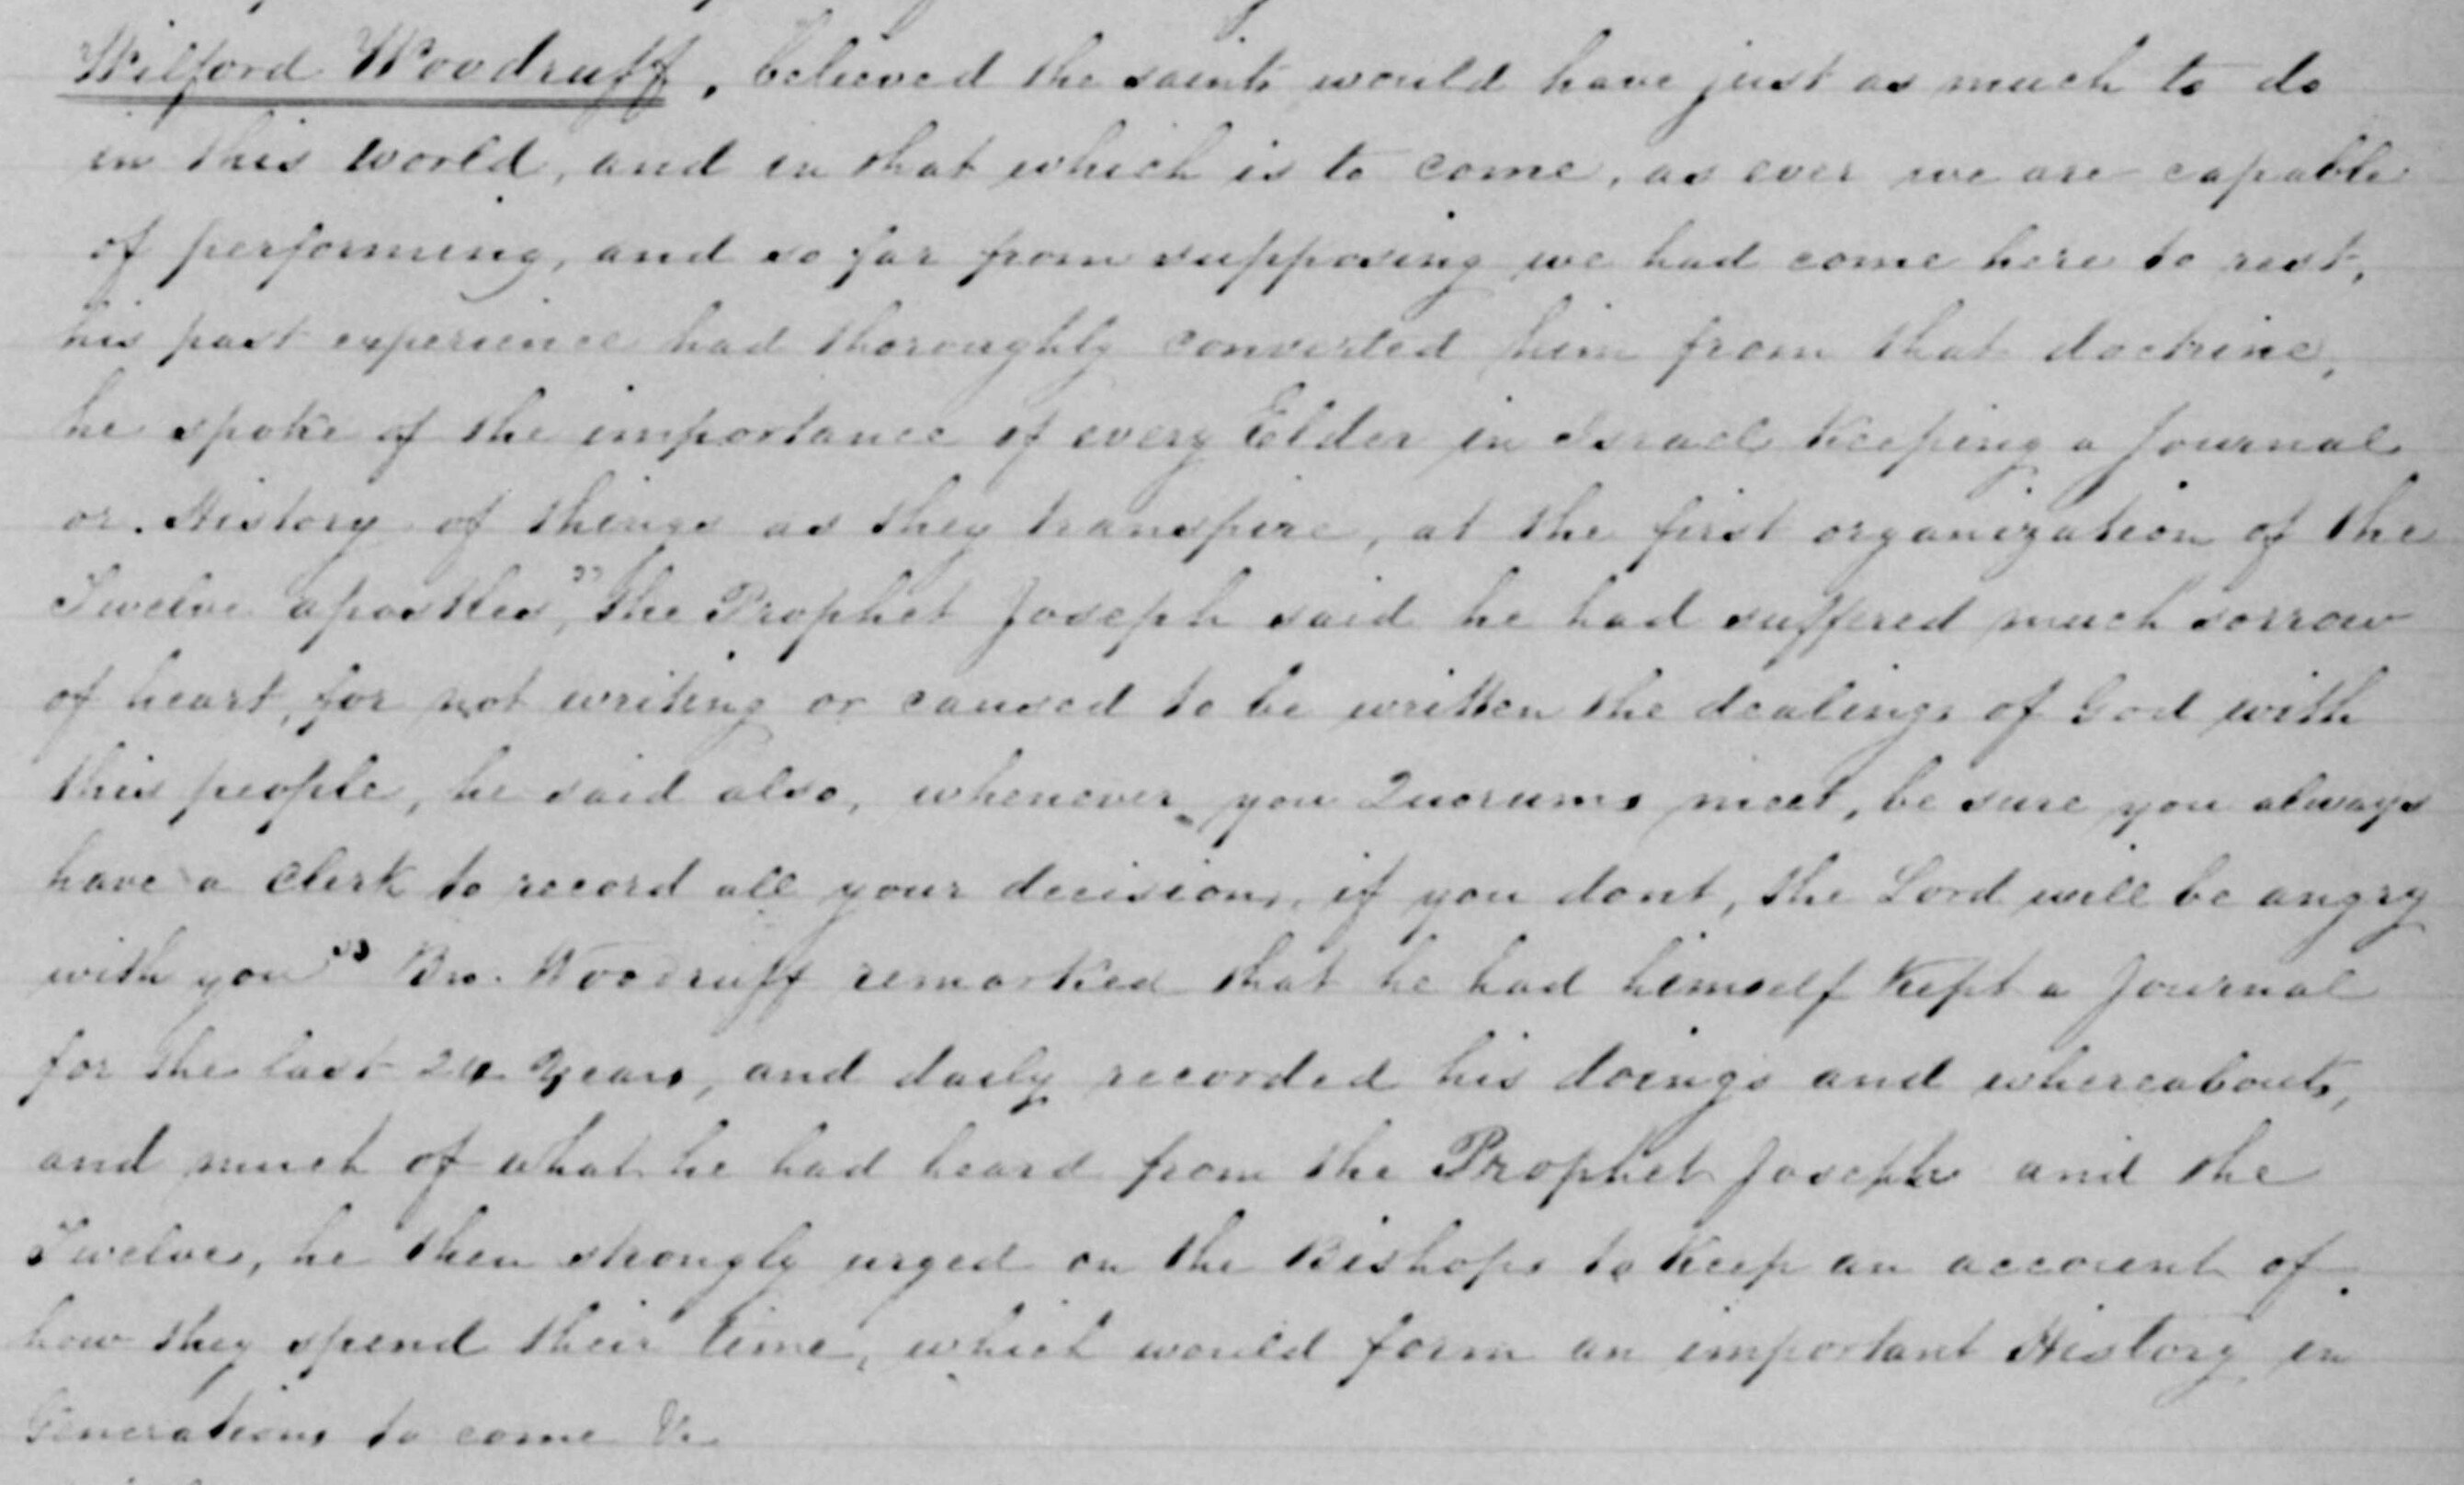 Wilford Woodruff, believed the saints would have just as much to do
in this world, and in that which is to come, as ever we are capable
of performing, and so far from supposing we had come here to rest,
his past experience had thoroughly converted him from that doctrine,
he spoke of the importance of every Elder in Israel Keeping a Journal
or History of things as they transpire, at the first organization of the
Twelve apostles, "the Prophet Joseph said he had suffered much sorrow
of heart, for not writing or caused to be written the dealings of God with
this people, he said also, whenever you Quorums meet, be sure you always
have a Clerk to record all your decisions, if you dont, the Lord will be angry
with you" Bro. Woodruff remarked that he had himself Kept a Journal
for the last 24 Years, and daily recorded his doings and whereabouts,
and much of what he had heard from the Prophet Joseph and the
Twelve, he then strongly urged on the Bishops to Keep an account of
how they spend their time, which would form an important History in
Generations to come &c